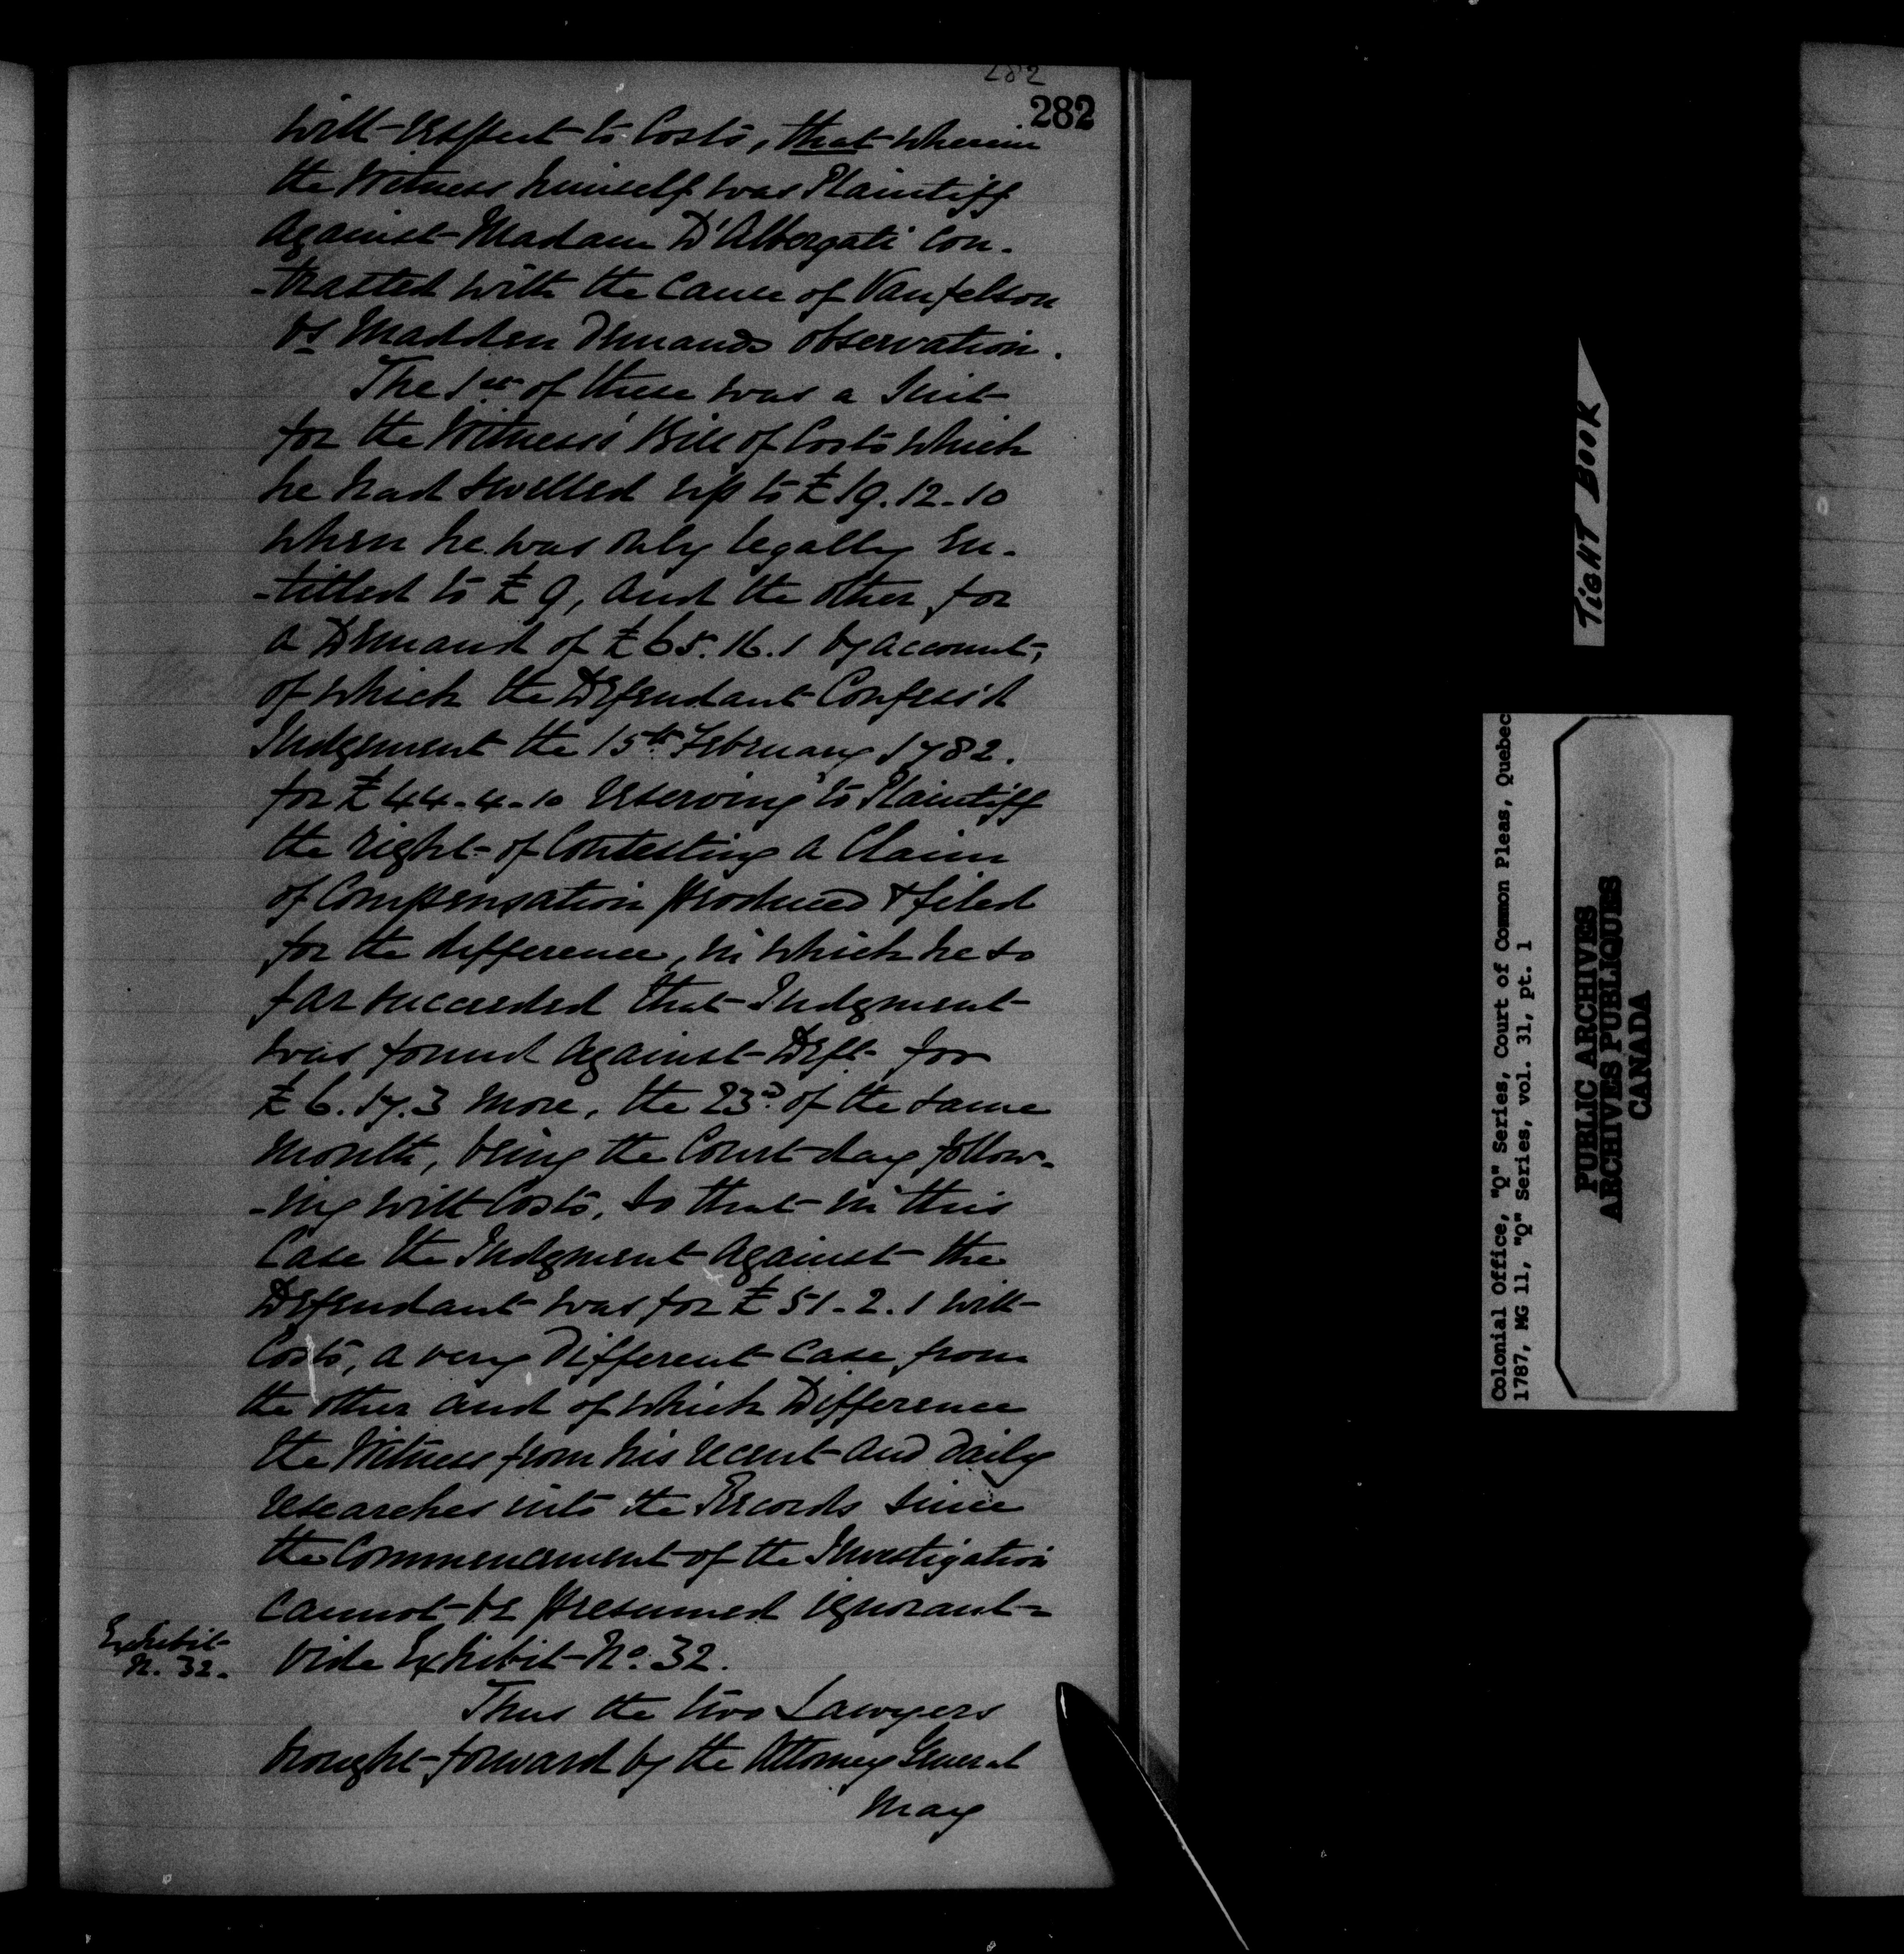 282
282
with respect to Costs, that wherein
the Witness himself was Plaintiff
Against Madam D'Albergati Con-
-trasted with the Cause of Vanfelson
vs Madden Demands observation.
The 1st of these was a Suit
for the Witness's Bill of Costs which
he had swelled up to £19.12.10
when he was only legally en-
-titled to £9, and the other for
a Demand of £65.16.1 by account,
of which the Defendant Confess'd
Judgment the 15th February 1782.
for £44-4-10 reserving to Plaintiff
the right of Contesting a Claim
of Compensation produced & filed
for the difference, in which he so
far succeeded that Judgment
was found Against Deft for
£6.17.3 more, the 23d of the same
Month, being the Court day follow-
-ing with Costs, so that in this
Case the Judgment Against the
Defendant was for £51-2.1 with
Costs, a very different case from
the other and of which Difference
the Witness from his recent and daily
researches into the Records since
the Commencement of the Investigation
cannot be presumed ignorant-
Exhibit
N. 32.
Vide Exhibit No. 32.
Thus the two Lawyers
brought forward by the Attorney General
May
TIGHT BOOK
Colonial Office, "Q" Series, Court of Common Pleas, Quebec
1787, MG 11, "Q" Series, vol. 31, pt. 1
PUBLIC ARCHIVES
ARCHIVES PUBLIQUES
CANADA